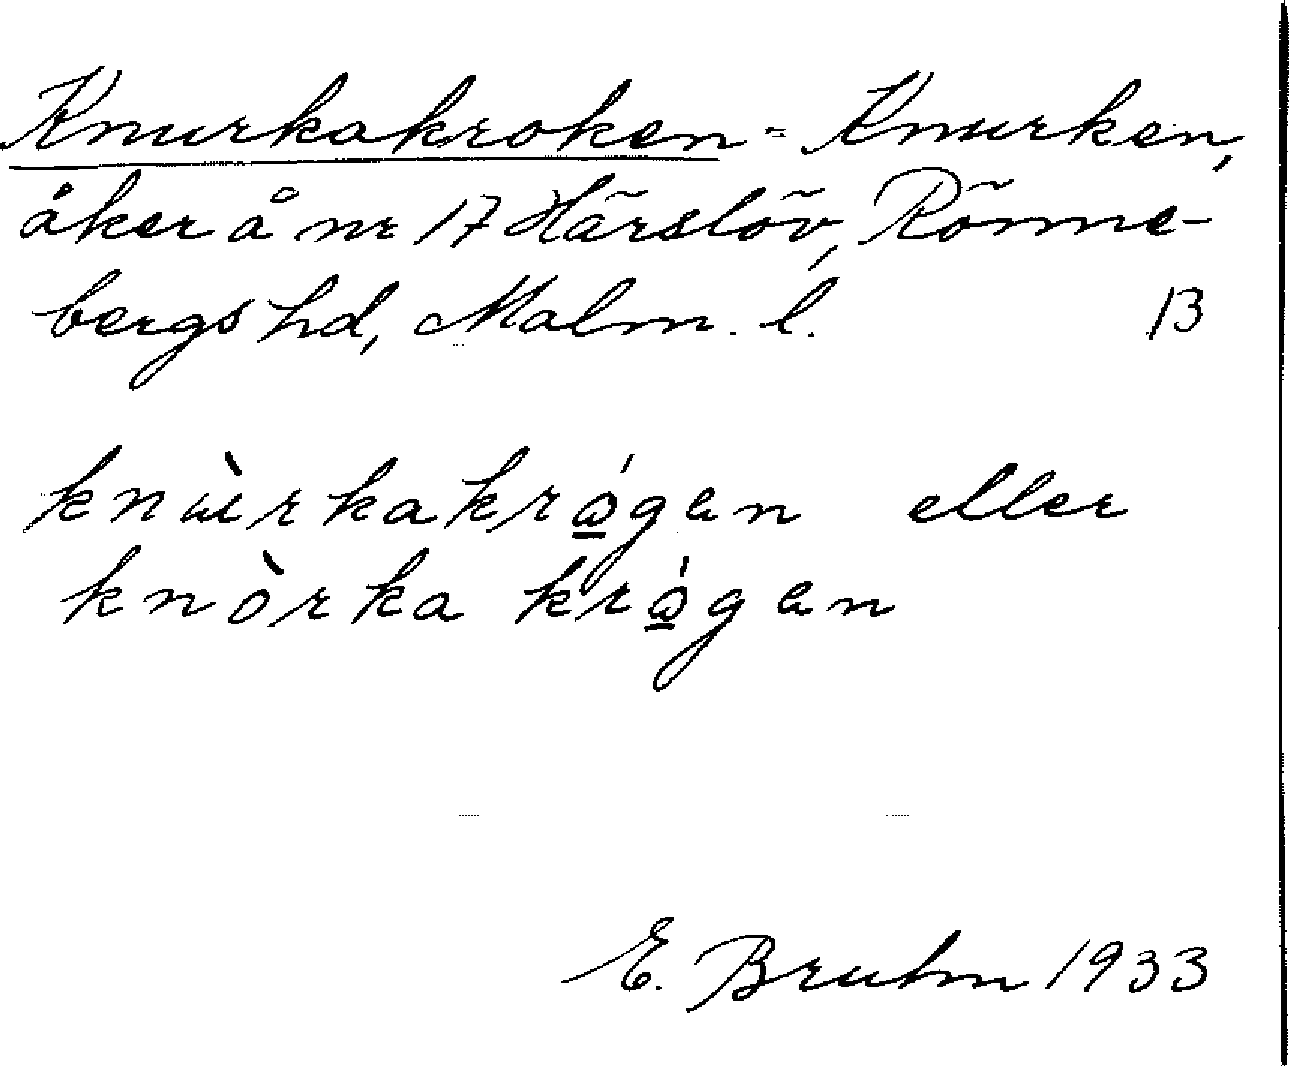 Knurkakroken = Knurken,
åker å nr 17 Härslöv, Rönne-
bergs hd, Malm. l. 13
knɯ̀rkakrǫ́gen eller
knòrka krǫ́gen
E. Bruhn 1933